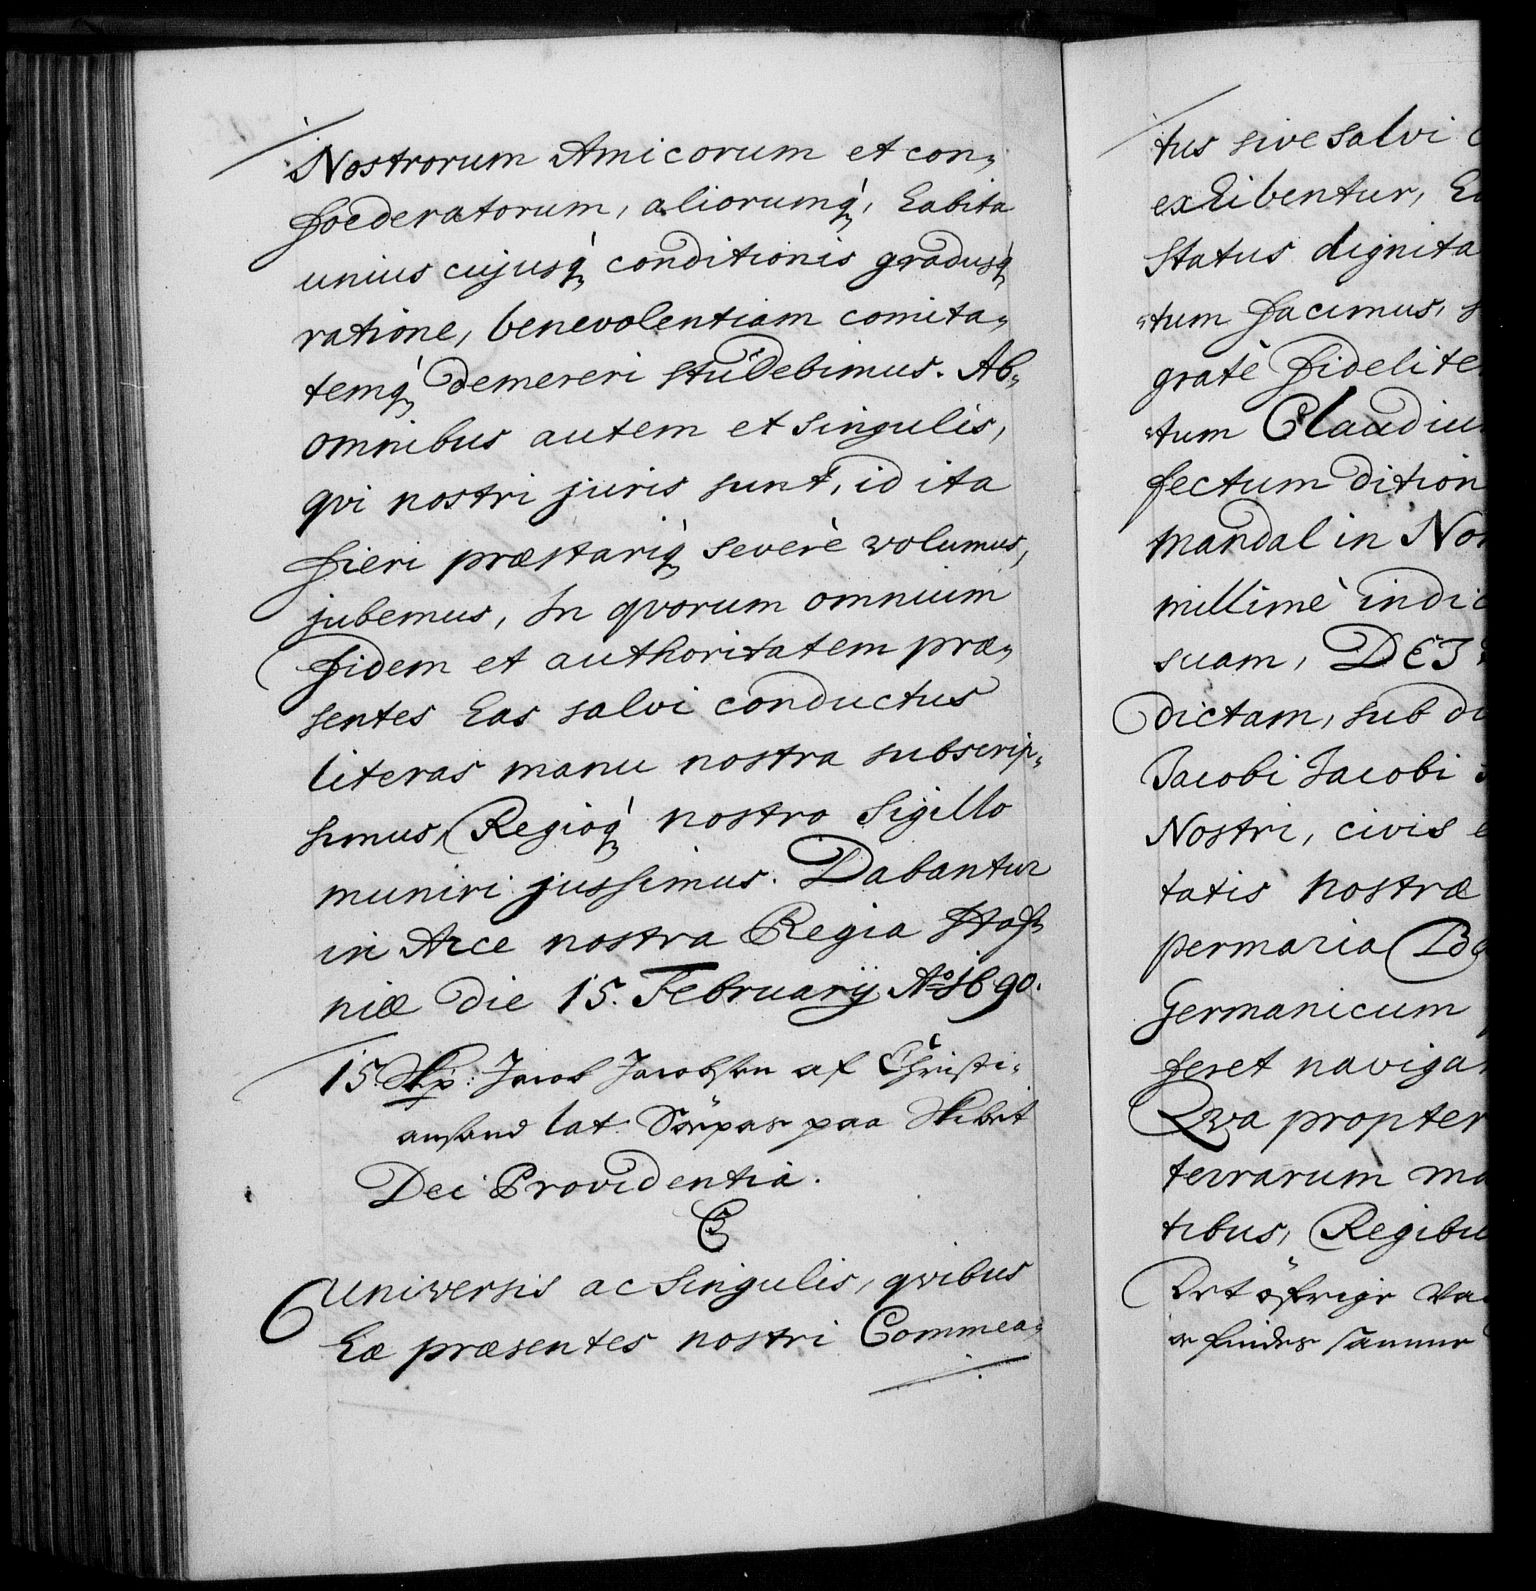 Nostrorum Amicorum et con„
foederatorum, aliorumq́;, habita
unius cujusq́; conditionis gradusq́;
ratione, benevolentiam comita„
temq́; demereri studebimus. Ab„
omnibus autem et singulis,
qvi nostri juris sunt, id ita
fieri præstariq́; severè volumus,
jubemus, In qvorum omnium
fidem et authoritatem præ„
sentes has salvi conductus
literas manu nostra subscrip„
simus, Regioq́; nostro Sigillo
muniri jussimus. Dabantur
in Arce nostra Regia Haf„
niæ die 15. Februarij Aō 1690.
15. Skip: Jacob Jacobsen af Christi„
ansand lat. Söepas paa Skibet
Dei Providentia.
C5
Universis ac Singulis, qvibus
hæ præsentes nostri Commea„
tus sive salvi c
exhibentur, ha
Status dignita
„tum facimus, s
gratè fidelite
„tum Claudiu
fectum dition
mandal in Nor
millimè indic
suam, DEI
dictam, sub di
Jacobi Jacobi
Nostri, civis e
tatis nostræ
per maria Ba
Germanicum
feret naviga
Qva propter
terrarum ma
tibus, Regibu
Det öfrige va
er findes samme